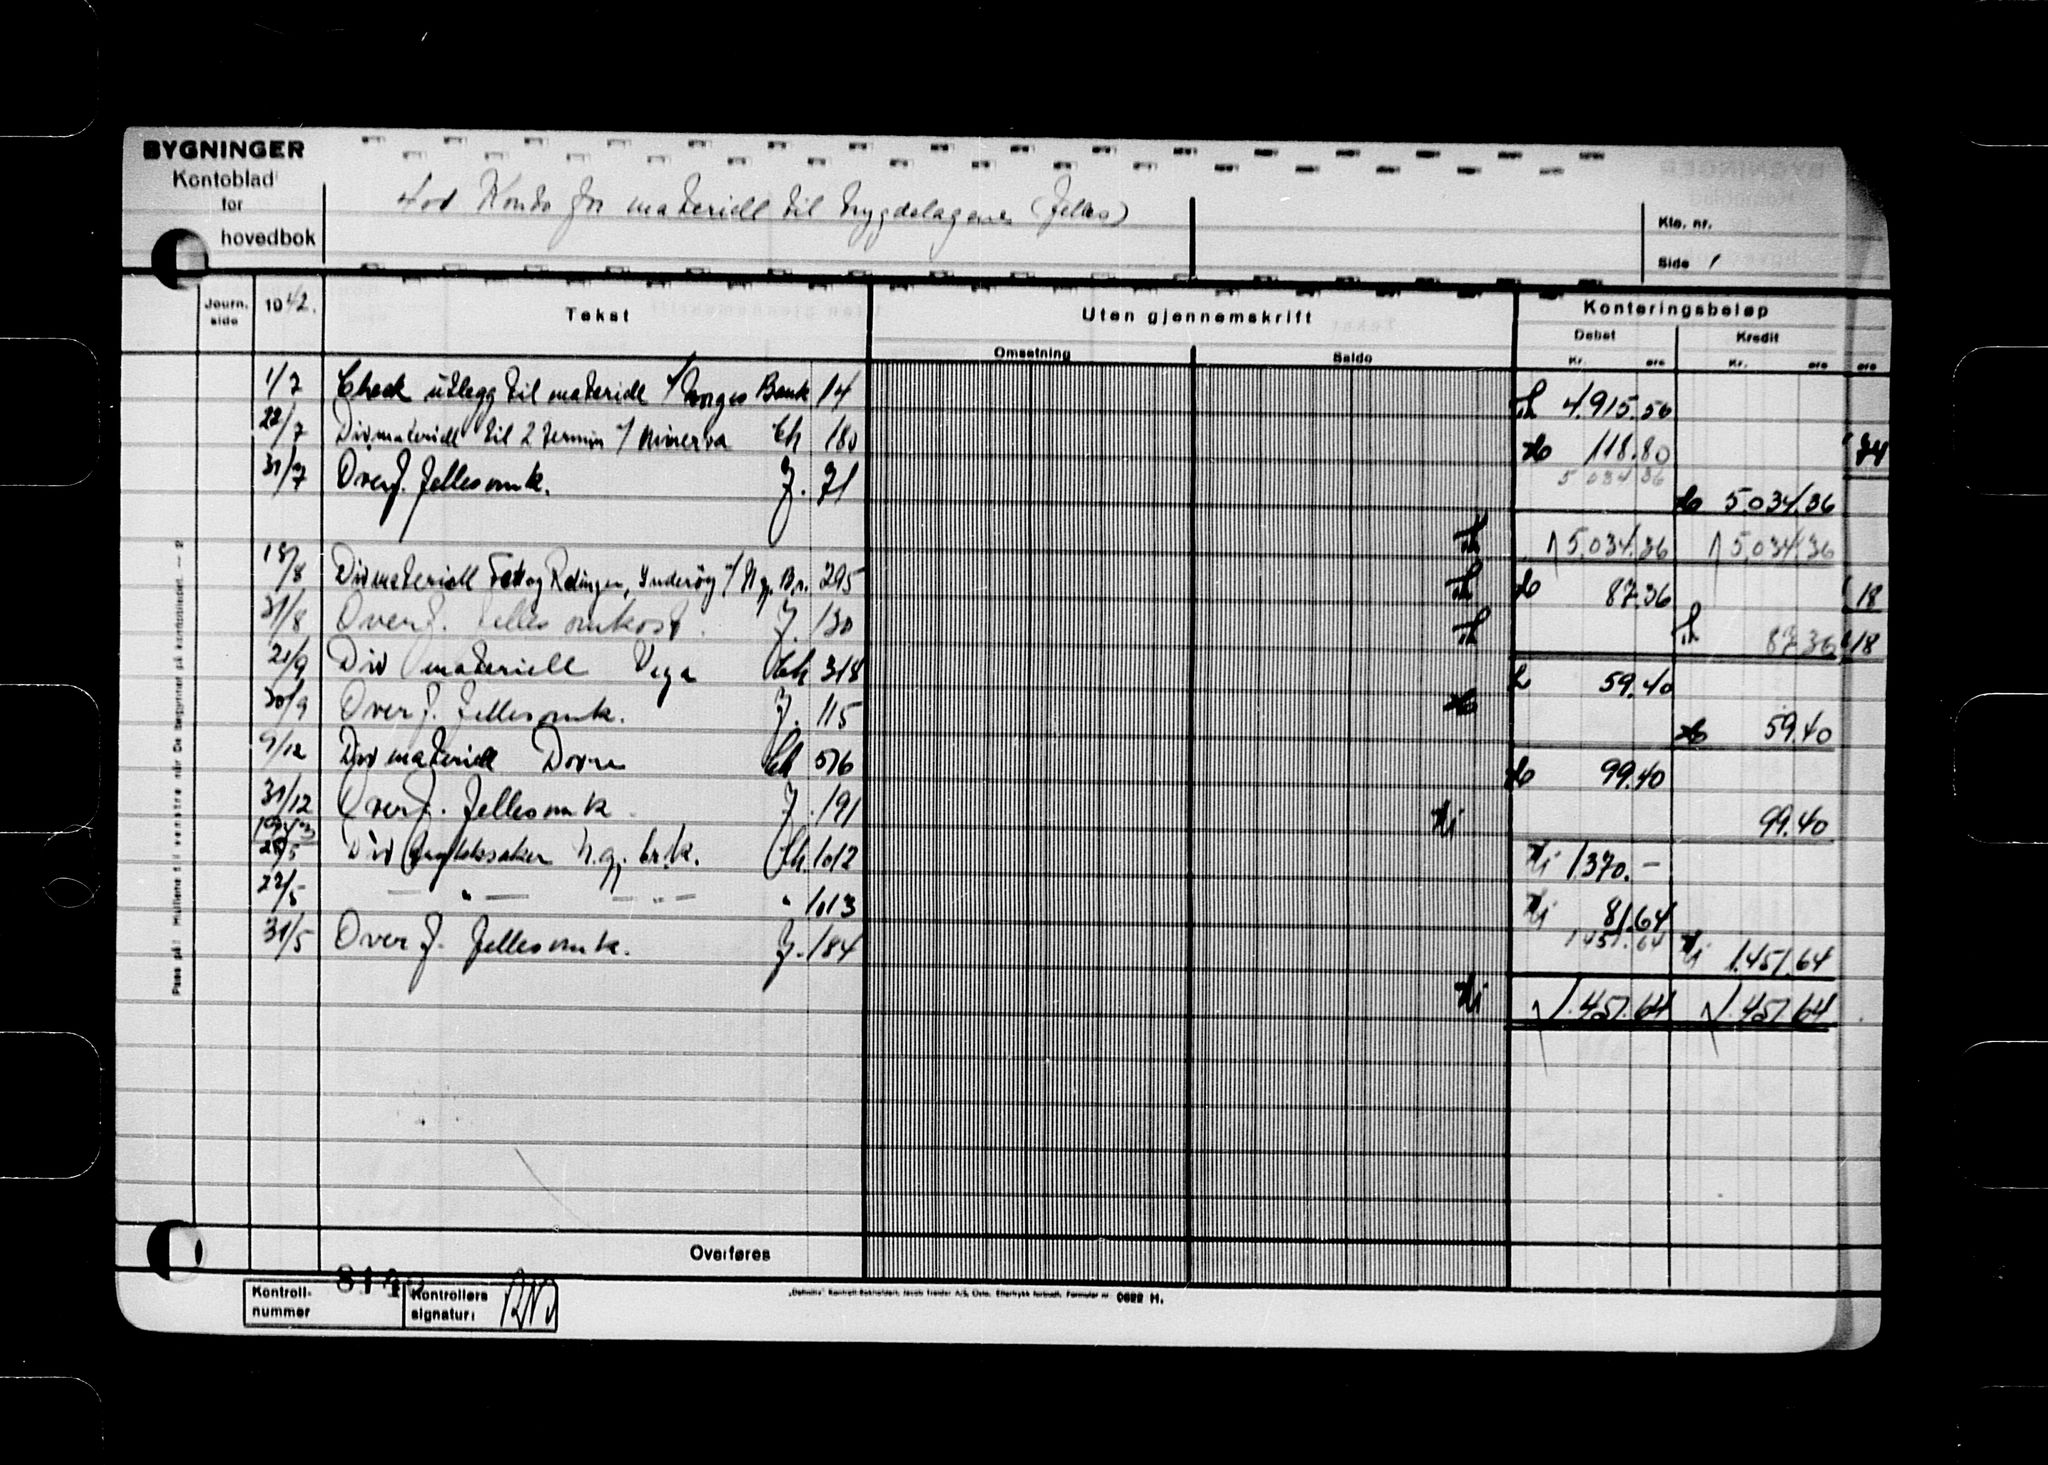 BYGNINGER
Kontoblad
for
hovedbok
Konto for materiell til bygdelagene (felles)
Kto. nr.
Side 1
Journ. side 1942. Tekst Uten gjennemskrift Konteringsbeløp
Omsetning Saldo Debet Kredit
Kr. øre Kr. øre øre
1/7 Check utlegg til materiell Norges Bank 14 Th 4.915.56
22/7 Div materiell til 2 termin Minerva Ch 180 118.80 74
31/7 Overf. fellesomk. J. 71 5 034 36
5.034.36
Th 5.034.36 5.034.36
/8 Div materiell og Inderøy Ng. Br. 295 Th 87.36 18
31/8 Overf. felles omkost. J. 130 Th Th 87.36 18
21/9 Div materiell Vega Ch 318 59.40
30/9 Overf. fellesomk. J. 115 59.40
9/12 Div materiell Dovre Ch 576 99.40
31/12 Overf. fellesomk. J. 191 Hj 99.40
/5 Div N.g. br.k. Ch. 1012 Hj 1370.-
22/5 — " — — " — " 1013 Hj 81.64
1451.64
31/5 Overf. fellesomk. J. 184 Hj 1.451.64
Hj 1.451.64 1.451.64
Pass på! Hullene til venstre når De begynner på kontobladet. — 2
Overføres
Kontroll-
nummer
Kontrollørs
signatur:
0622 H.